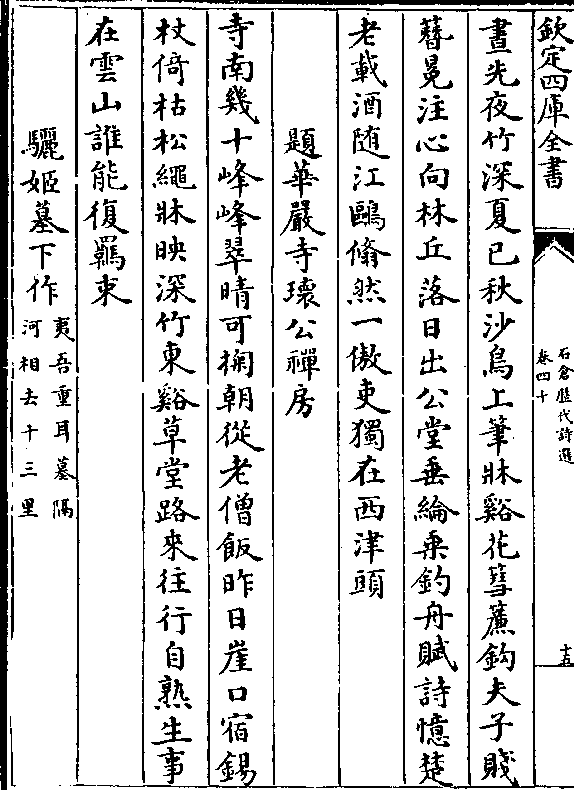 欽定四庫全書
石倉歷代詩選
卷四十
十五
晝光夜竹深夏已秋沙鳥上筆牀谿花彗簾鈎夫子賤
簪冕注心向林丘落日出公堂垂綸乗釣舟賦詩憶楚
老載酒隨江鷗翛然一傲吏獨在西津頭
題華嚴寺瓌公禪房
寺南幾十峰峰翠晴可掬朝從老僧飯昨日崖口宿錫
杖倚枯松繩牀映深竹東谿草堂路來往行自熟生事
在雲山誰能復羈束
驪姬墓下作
夷吾重耳墓隔
河相去十三里